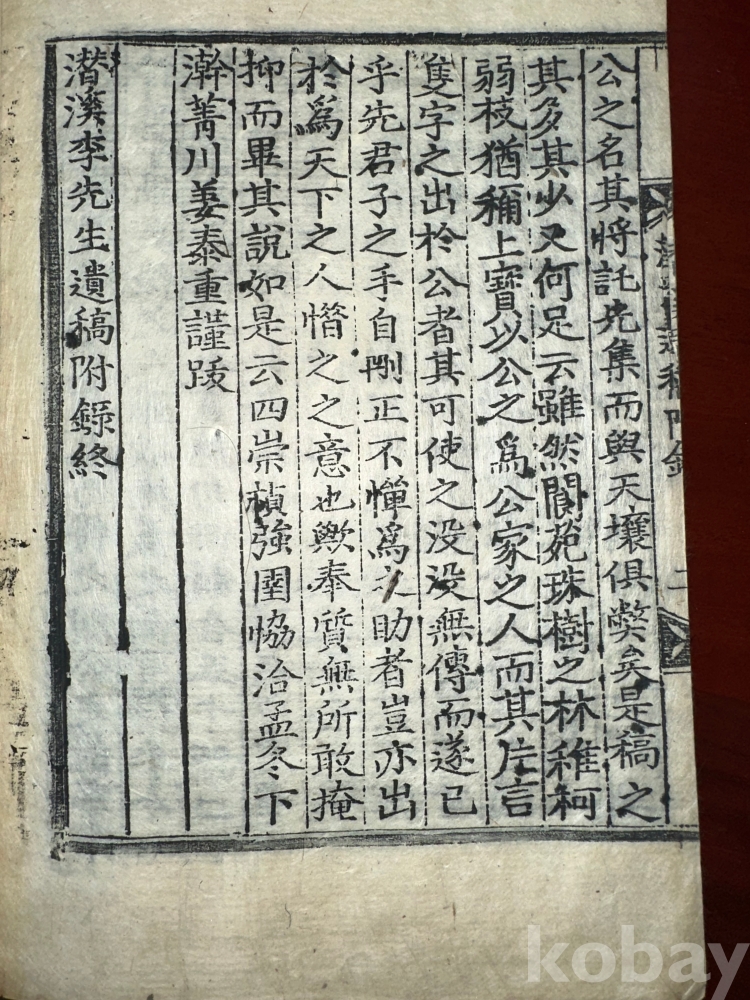 公之名其將託先集而與天壤俱弊矣是稿之
其多其少又何足云雖然閬菀珠樹之林稚柯
弱枝猶稱上寶以公之爲公家之人而其片言
隻字之出於公者其可使之没没無傳而遂已
乎先君子之手自剛正不憚爲之助者豈亦出
於爲天下之人惜之之意也歟奉質無所敢掩
抑而畢其說如是云四崇禎強圉恊洽孟冬下
澣菁川姜泰重謹跋
潛溪李先生遺稿附錄終
遺稿附錄
二
kobay